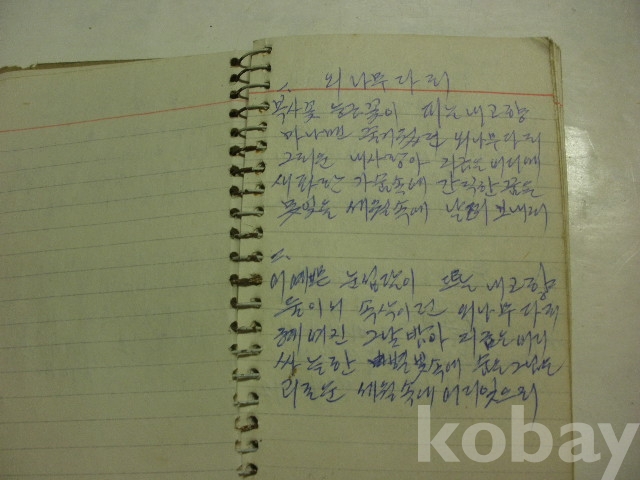 1. 외나무다리
복사꽃 능금꽃이 피는 내고향
만나면 즐거웠던 외나무다리
그리운 내사랑아 지금은 어디에
새파란 가슴속에 간직한 꿈을
못잊을 세월속에 날려 보내리
2.
어여쁜 눈썹달이 뜨는 내고향
둘이서 속삭이던 외나무다리
헤어진 그날밤아 지금은 어디
싸늘한 별빛속에 숨은 그님을
괴로운 세월속에 어디잊으리
kobay